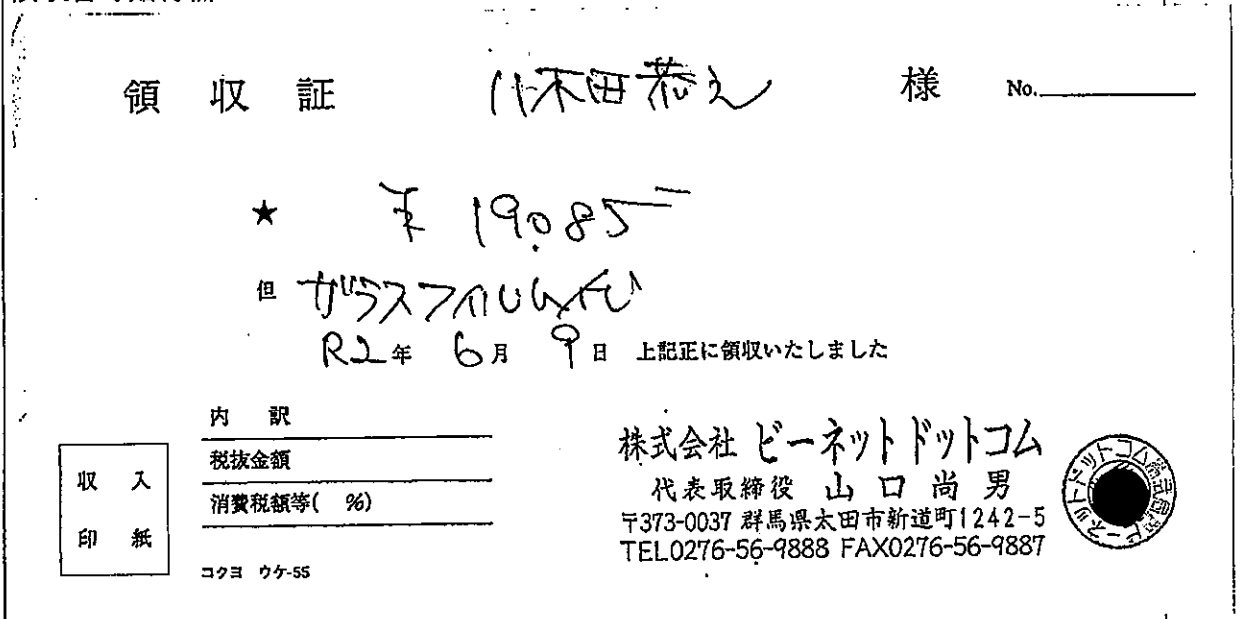 領収証 様 No.
★ ¥19,085
但 ガラスフィルム代
R2年 6月 9日 上記正に領収いたしました
内 訳
税抜金額
消費税額等( %)
収入
印紙
コクヨ ウケ-55
株式会社 ビーネットドットコム
代表取締役 山口尚男
〒373-0037 群馬県太田市新道町1242-5
TEL.0276-56-9888 FAX0276-56-9887